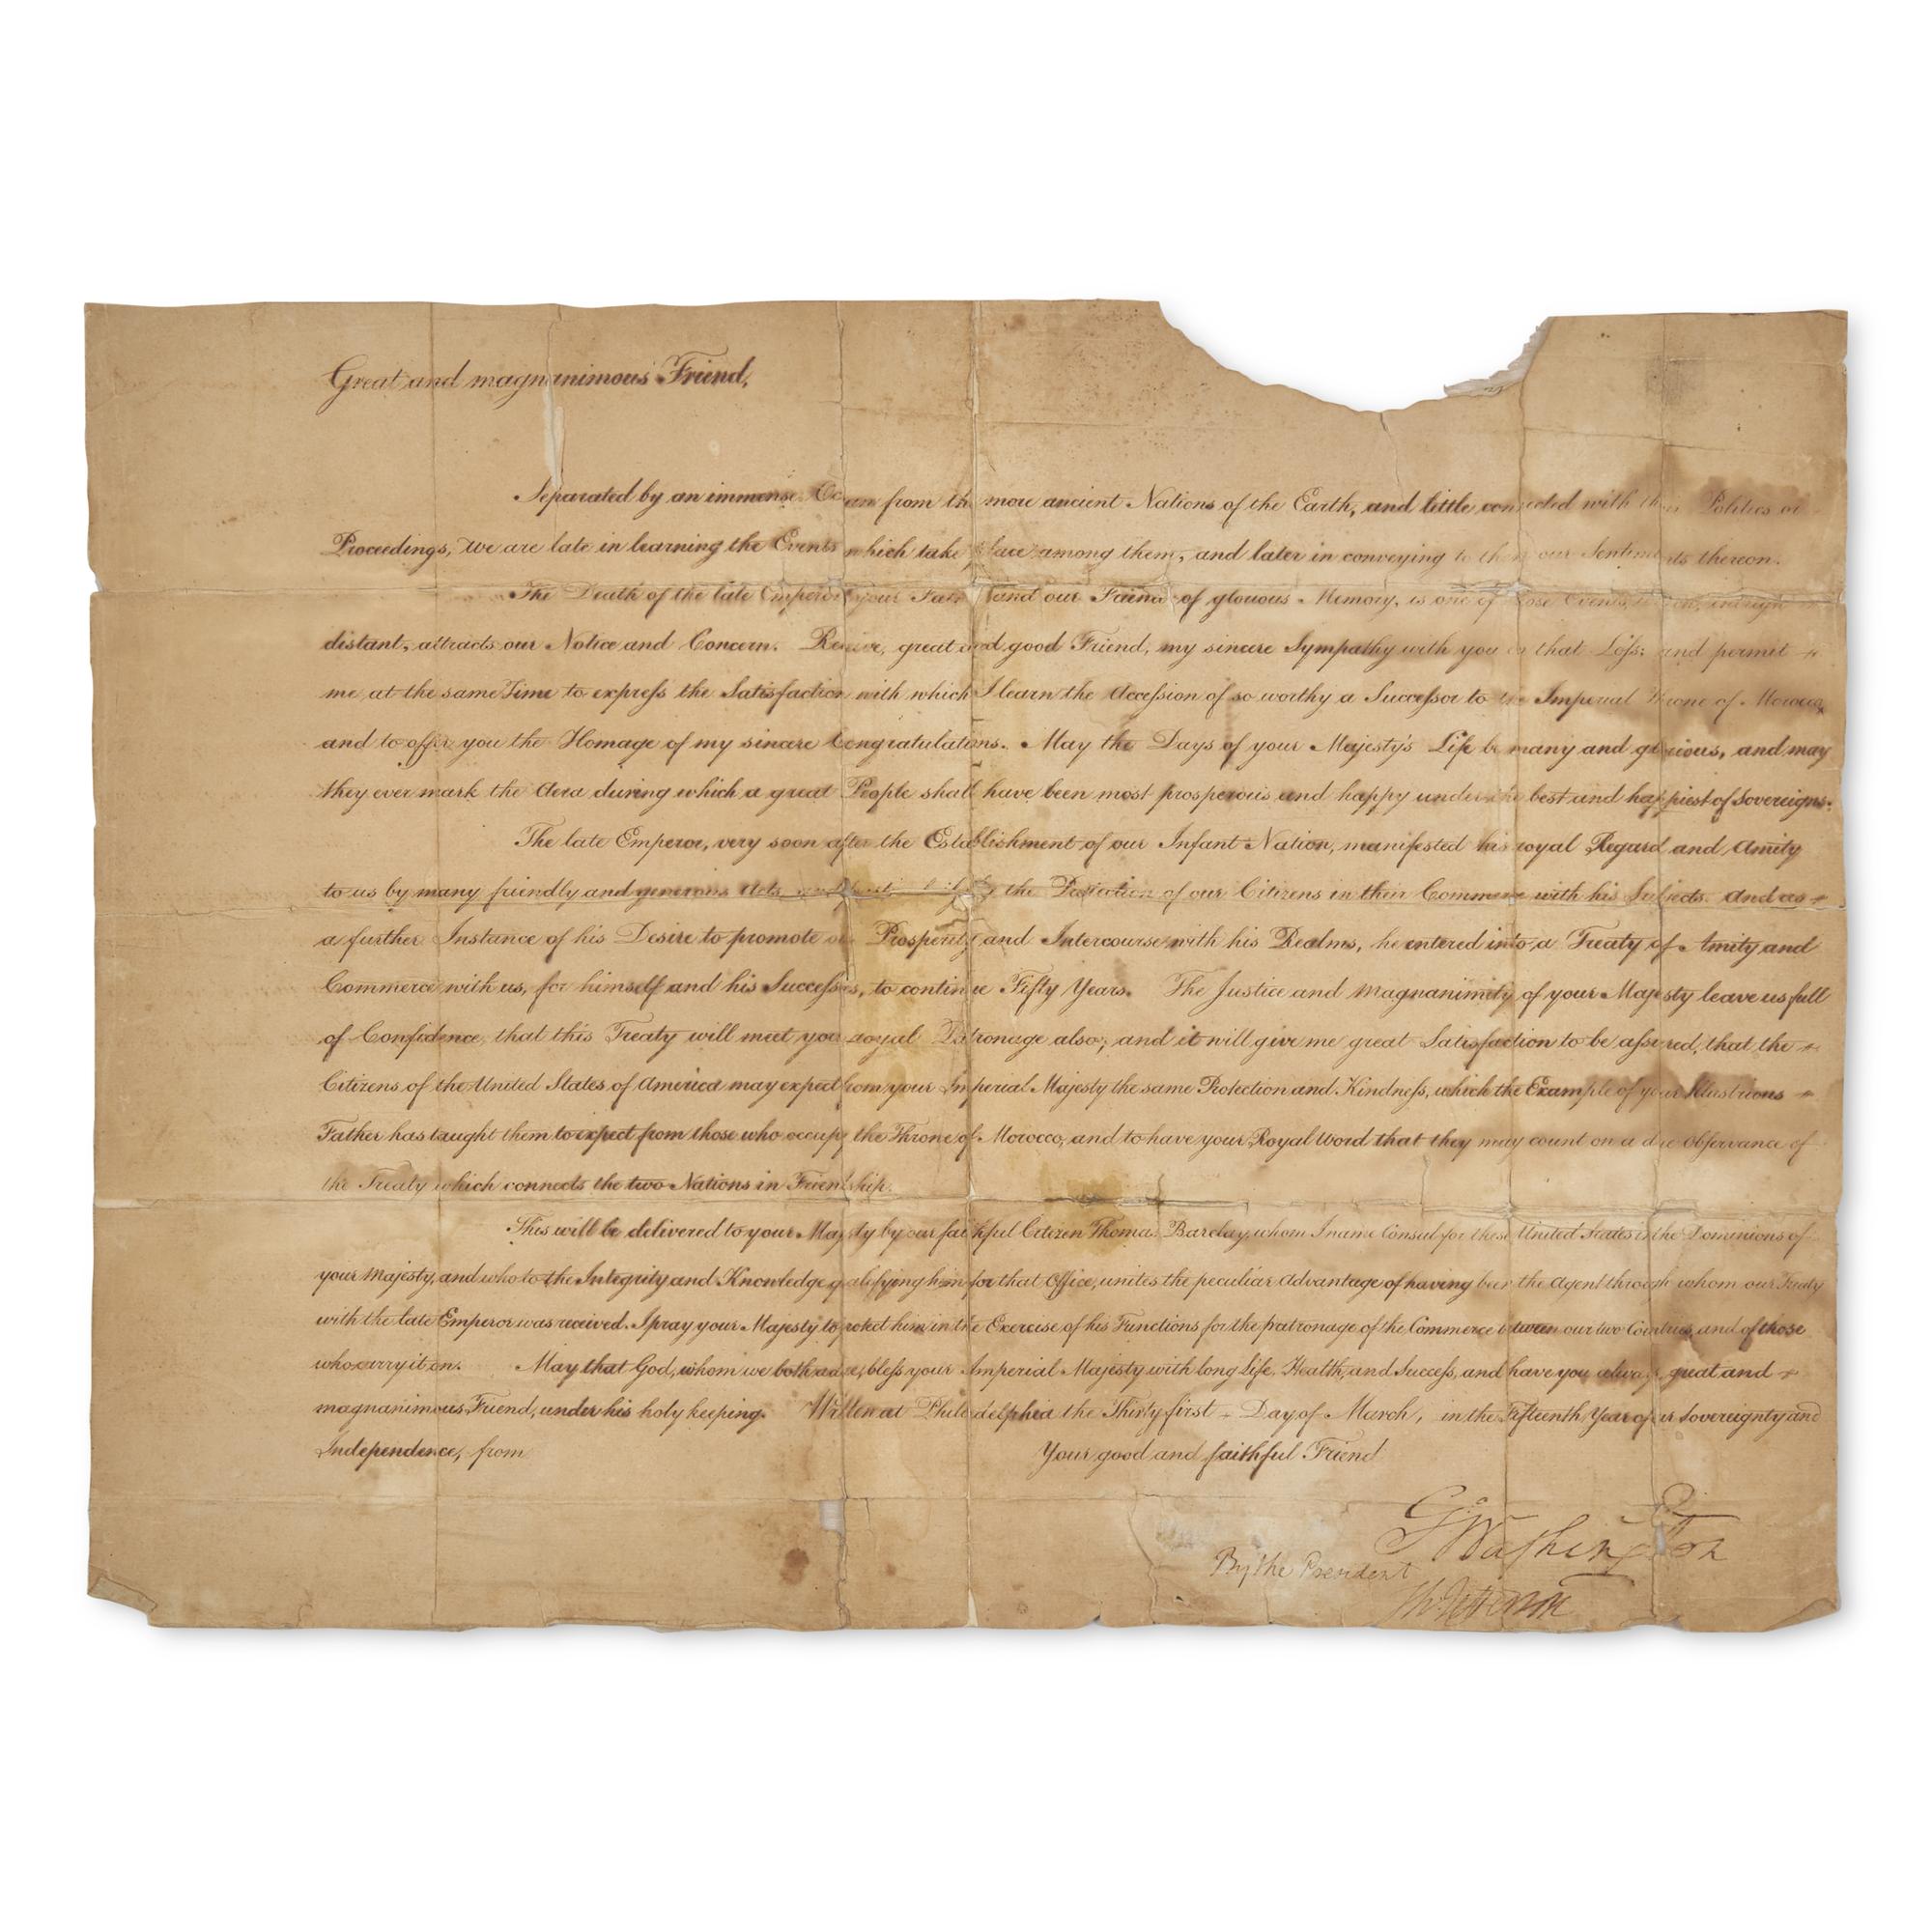 Great and magnanimous Friend,
Separated by an immense Ocean from the more ancient Nations of the Earth, and little connected with their Politics or
Proceedings, we are late in learning the Events which take place among them, and later in conveying to them our Sentiments thereon.
The Death of the late Emperor your Father and our Friend of glorious Memory, is one of those Events, which, tho
distant, attracts our Notice and Concern. Receive, great and good Friend, my sincere Sympathy with you on that Loss; and permit
me, at the same Time to express the Satisfaction with which I learn the Accession of so worthy a Successor to the Imperial Throne of Morocco,
and to offer you the Homage of my sincere Congratulations. May the Days of your Majesty's Life be many and glorious, and may
they ever mark the Aera during which a great People shall have been most prosperous and happy under the best and happiest of Sovereigns.
The late Emperor, very soon after the Establishment of our Infant Nation, manifested his royal Regard and Amity
to us by many friendly and generous Acts, the Protection of our Citizens in their Commerce with his Subjects. And as
a further Instance of his Desire to promote our Prosperity and Intercourse with his Realms, he entered into a Treaty of Amity and
Commerce with us, for himself and his Successors, to continue Fifty Years. The Justice and Magnanimity of your Majesty leave us full
of Confidence, that this Treaty will meet your royal Patronage also; and it will give me great Satisfaction to be assured, that the
Citizens of the United States of America may expect from your Imperial Majesty the same Protection and Kindness, which the Example of your Illustrious
Father has taught them to expect from those who occupy the Throne of Morocco, and to have your Royal Word that they may count on a due Observance of
the Treaty which connects the two Nations in Friendship.
This will be delivered to your Majesty by our faithful Citizen Thomas Barclay, whom I name Consul for these United States in the Dominions of
your Majesty, and who to the Integrity and Knowledge qualifying him for that Office, unites the peculiar Advantage of having been the Agent through whom our Treaty
with the late Emperor was received. I pray your Majesty to protect him in the Exercise of his Functions for the patronage of the Commerce between our two Countries, and of those
who carry it on. May that God, whom we both adore, bless your Imperial Majesty with long Life, Health, and Success, and have you always, great and
magnanimous Friend, under his holy keeping. Written at Philadelphia the Thirty first Day of March, in the Fifteenth Year of our Sovereignty and
Independence, from Your good and faithful Friend
G: Washington
By the President
Th: Jefferson